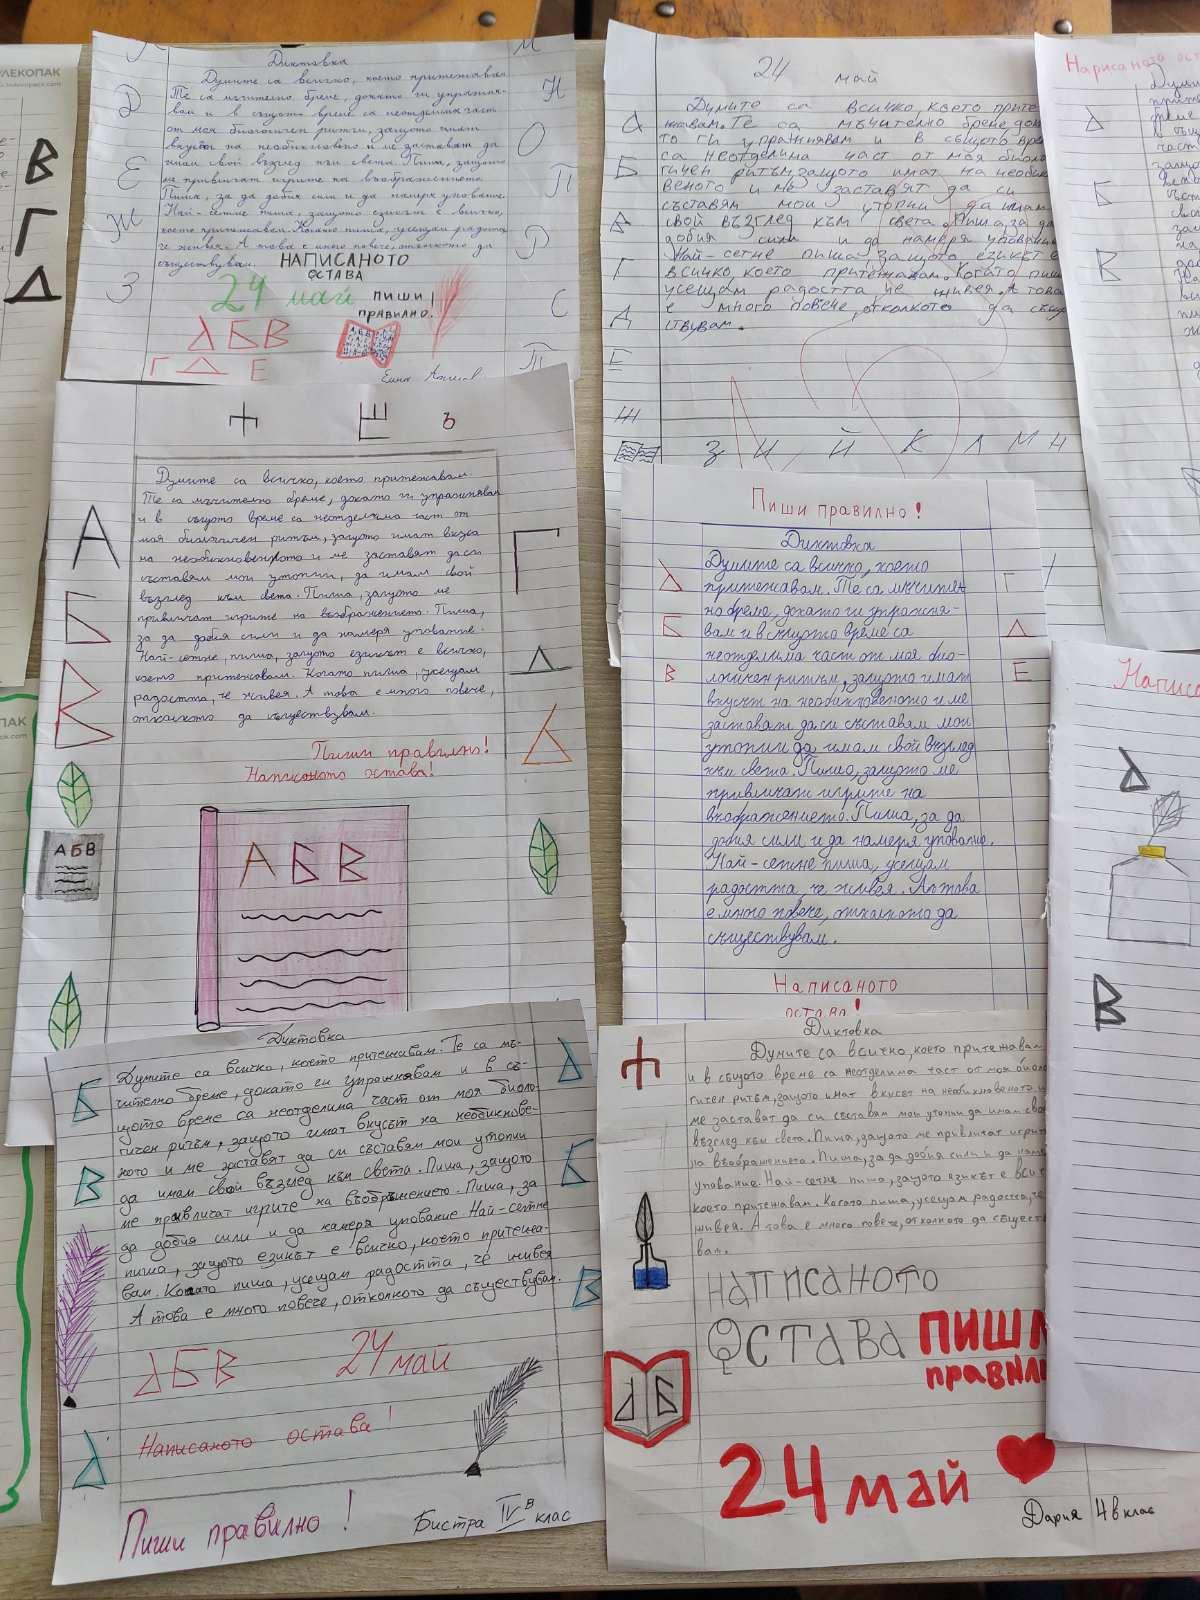 ЛЕКОПАК
В
Г
Д
ПАК
Диктовка
Думите са всичко, което притежавам.
Те са мъчително бреме, докато ги упражня-
вам и в същото време са неотделима част
от моя биологичен ритъм, защото имат
вкусът на необикновено и ме заставят да
имам свой възглед към света. Пиша, защото
ме привличат игрите на въображението.
Пиша, за да добия сили и да намеря упование.
Най-сетне пиша, защото езикът е всичко,
което притежавам. Когато пиша, усещам радостта,
че живея. А това е много повече, отколкото да
съществувам.
НАПИСАНОТО
ОСТАВА
24 май
ПИШИ
ПРАВИЛНО.
А Б В
Г Д Е
Д
Е
Ж
З
М
Н
О
П
Р
С
24 май
Думите са всичко, което прите-
жавам. Те са мъчително бреме, док
то ги упражнявам и в същото вре
са неотделима част от моя биоло
гичен ритъм, защото имат на необик
веното и ме заставят да си
съставям мои утопии да имам
свой възглед към света. Пиша, за да
добия сили и да намеря упование
Най-сетне пиша защото езикът е
всичко, което притежавам. Когато пиш
усещам радостта че живея. А това
е много повече, отколкото да съще
ствувам.
А
Б
В
Г
Д
Е
Ж
З И Й К Л М Н
А
Б
В
Думите са всичко, което притежавам.
Те са мъчително бреме, докато ги упражнявам
и в същото време са неотделима част от
моя биологичен ритъм, защото имат вкуса
на необикновеното и ме заставят да си
съставям мои утопии, да имам свой
възглед към света. Пиша, защото ме
привличат игрите на въображението. Пиша,
за да добия сили и да намеря упование.
Най-сетне, пиша, защото езикът е всичко,
което притежавам. Когато пиша, усещам
радостта, че живея. А това е много повече,
отколкото да съществувам.
Пиши правилно!
Написаното остава!
А
Б
В
Г
Д
ъ
АБВ
А Б В
Пиши правилно!
Диктовка
Думите са всичко, което
притежавам. Те са мъчител
но бреме, докато ги упражня-
вам и в същото време са
неотделима част от моя био-
логичен ритъм, защото имат
вкусът на необикновеното и ме
заставят да си съставям мои
утопии да имам свой възглед
към света. Пиша, защото ме
привличат игрите на
въображението. Пиша, за да
добия сили и да намеря упование.
Най-сетне пиша, усещам
радостта че живея. А това
е много повече, отколкото да
съществувам.
Написаното
остава!
А
Б
В
Г
Д
Е
А
В
Диктовка
Думите са всичко, което притежавам. Те са мъ-
чително бреме, докато ги упражнявам и в съ-
щото време са неотделима част от моя биоло-
гичен ритъм, защото имат вкусът на необикнове-
ното и ме заставят да си съставям мои утопии
да имам свой възглед към света. Пиша, защото
ме привличат игрите на въображението. Пиша, за
да добия сили и да намеря упование Най-сетне
пиша, защото езикът е всичко, което притежа-
вам. Когато пиша, усещам радостта, че живея
А това е много повече, отколкото да съществувам.
АБВ
24 май
Написаното остава!
Пиши правилно!
Бистра IV в клас
Б
В
А
А
Б
В
Диктовка
Думите са всичко, което притежавам
и в същото време са неотделима част от моя биоло
гичен ритъм, защото имат вкусът на необикновеното и
ме заставят да си съставям мои утопии да имам сво
възглед към света. Пиша, защото ме привличат игрит
на въображението. Пиша, за да добия сили и да наме
упование. Най-сетне пиша, защото езикът е всич
което притежавам. Когато пиша, усещам радостта, че
живея. А това е много повече, отколкото да същест
вам.
написаното
остава
ПИШИ
правилн
А Б
24 май
Дария 4 в клас